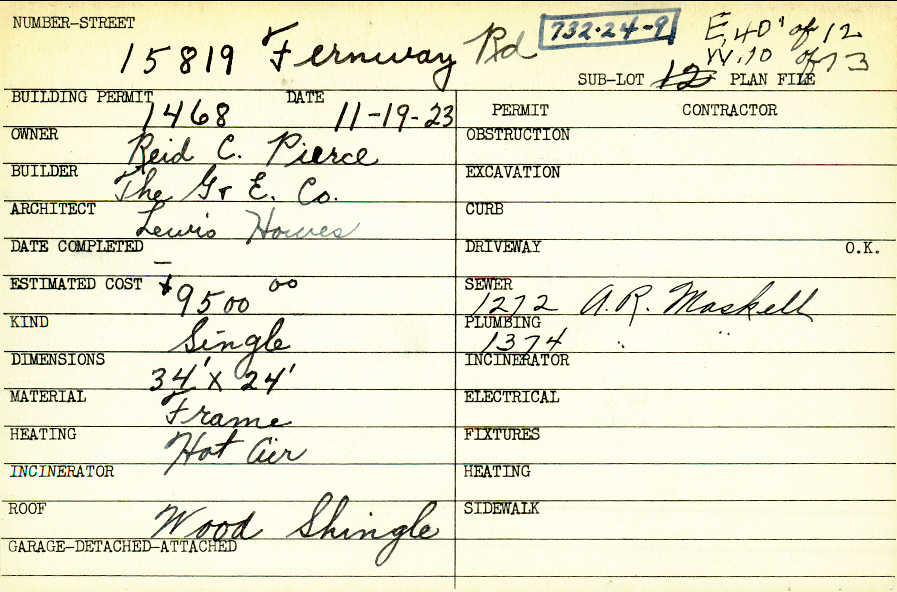 NUMBER-STREET
15819 Fernway Rd 732-24-9 E, 40' of 12
W. 10 of 13
SUB-LOT 12 PLAN FILE
BUILDING PERMIT 1468 DATE 11-19-23
OWNER Reid C. Pierce
BUILDER The G & E. Co.
ARCHITECT Lewis Howes
DATE COMPLETED —
ESTIMATED COST $9500 00
KIND Single
DIMENSIONS 34' X 24'
MATERIAL Frame
HEATING Hot Air
INCINERATOR
ROOF Wood Shingle
GARAGE-DETACHED-ATTACHED
PERMIT CONTRACTOR
OBSTRUCTION
EXCAVATION
CURB
DRIVEWAY O.K.
SEWER 1272 A.R. Maskell
PLUMBING 1374 " "
INCINERATOR
ELECTRICAL
FIXTURES
HEATING
SIDEWALK